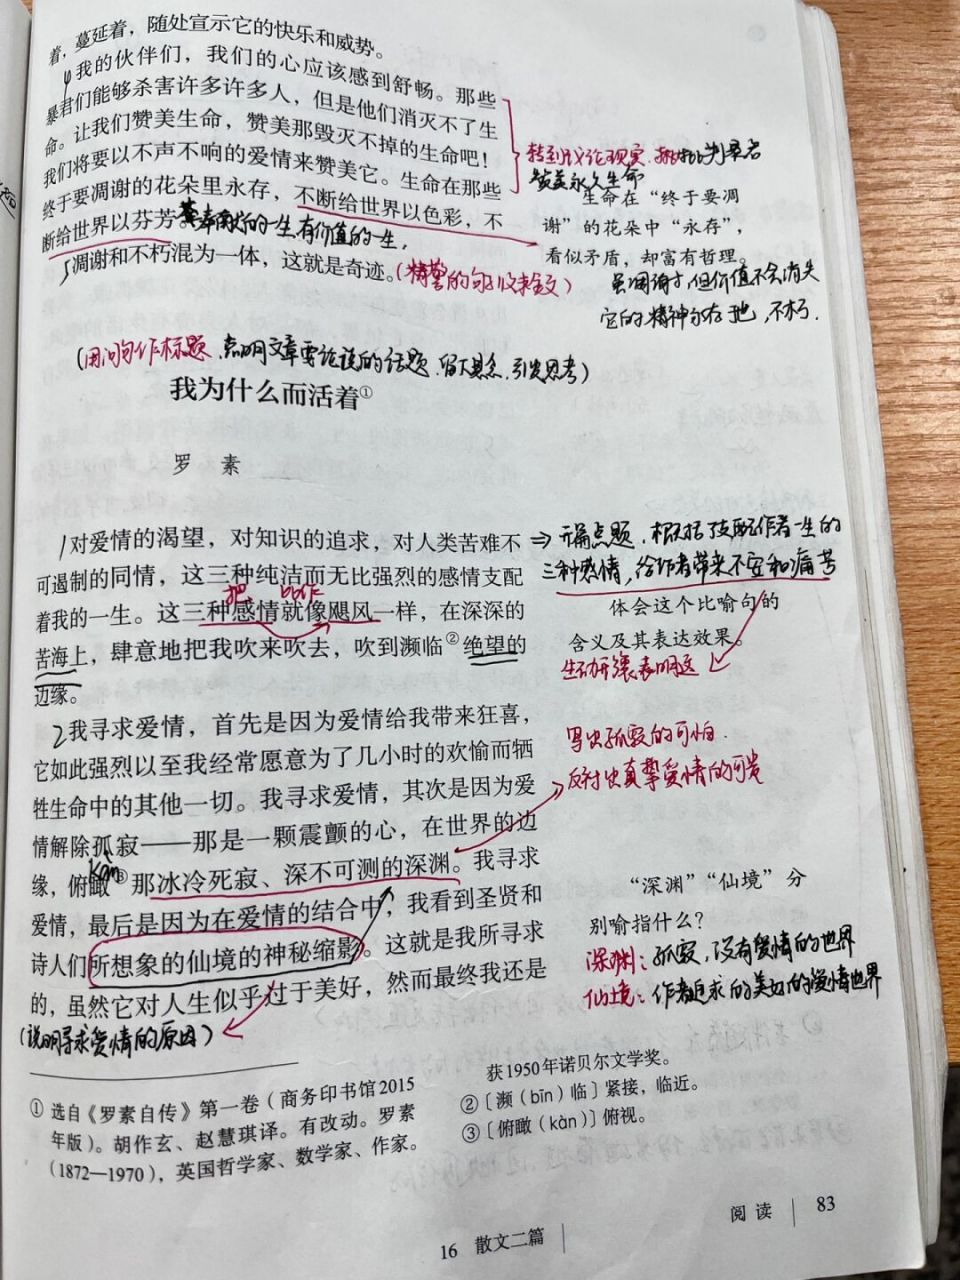 着，蔓延着，随处宣示它的快乐和威势。
4我的伙伴们，我们的心应该感到舒畅。那些
暴君们能够杀害许多许多人，但是他们消灭不了生
命。让我们赞美生命，赞美那毁灭不掉的生命吧！
我们将要以不声不响的爱情来赞美它。生命在那些
终于要凋谢的花朵里永存，不断给世界以色彩，不
断给世界以芬芳。
奉献的一生，有价值的一生，
5凋谢和不朽混为一体，这就是奇迹。（精警的句子收束全文）
转到议论现实，批判暴君
赞美永久生命
生命在“终于要凋
谢”的花朵中“永存”，
看似矛盾，却富有哲理。
虽凋谢了，但价值不会消失
它的精神永存于地，不朽.
（用问句作标题，点明文章要论说的话题，留下悬念，引发思考）
我为什么而活着①
罗 素
1对爱情的渴望，对知识的追求，对人类苦难不
可遏制的同情，这三种纯洁而无比强烈的感情支配
着我的一生。这三种感情就像飓风一样，在深深的
把 比作
苦海上，肆意地把我吹来吹去，吹到濒临②绝望的
边缘。
⇒开篇点题，概括支配作者一生的
三种感情，给作者带来不安和痛苦
体会这个比喻句的
含义及其表达效果。
生动形象表明这
2我寻求爱情，首先是因为爱情给我带来狂喜，
它如此强烈以至我经常愿意为了几小时的欢愉而牺
牲生命中的其他一切。我寻求爱情，其次是因为爱
情解除孤寂——那是一颗震颤的心，在世界的边
缘，俯瞰③那冰冷死寂、深不可测的深渊。我寻求
kàn
爱情，最后是因为在爱情的结合中，我看到圣贤和
诗人们所想象的仙境的神秘缩影。这就是我所寻求
的，虽然它对人生似乎过于美好，然而最终我还是
（说明寻求爱情的原因）
写出孤寂的可怕.
反衬出真挚爱情的可贵
“深渊”“仙境”分
别喻指什么？
深渊：孤寂，没有爱情的世界
仙境：作者追求的美好的爱情世界
① 选自《罗素自传》第一卷（商务印书馆2015
年版）。胡作玄、赵慧琪译。有改动。罗素
（1872—1970），英国哲学家、数学家、作家。
获1950年诺贝尔文学奖。
②〔濒（bīn）临〕紧接，临近。
③〔俯瞰（kàn）〕俯视。
16 散文二篇
阅读 83